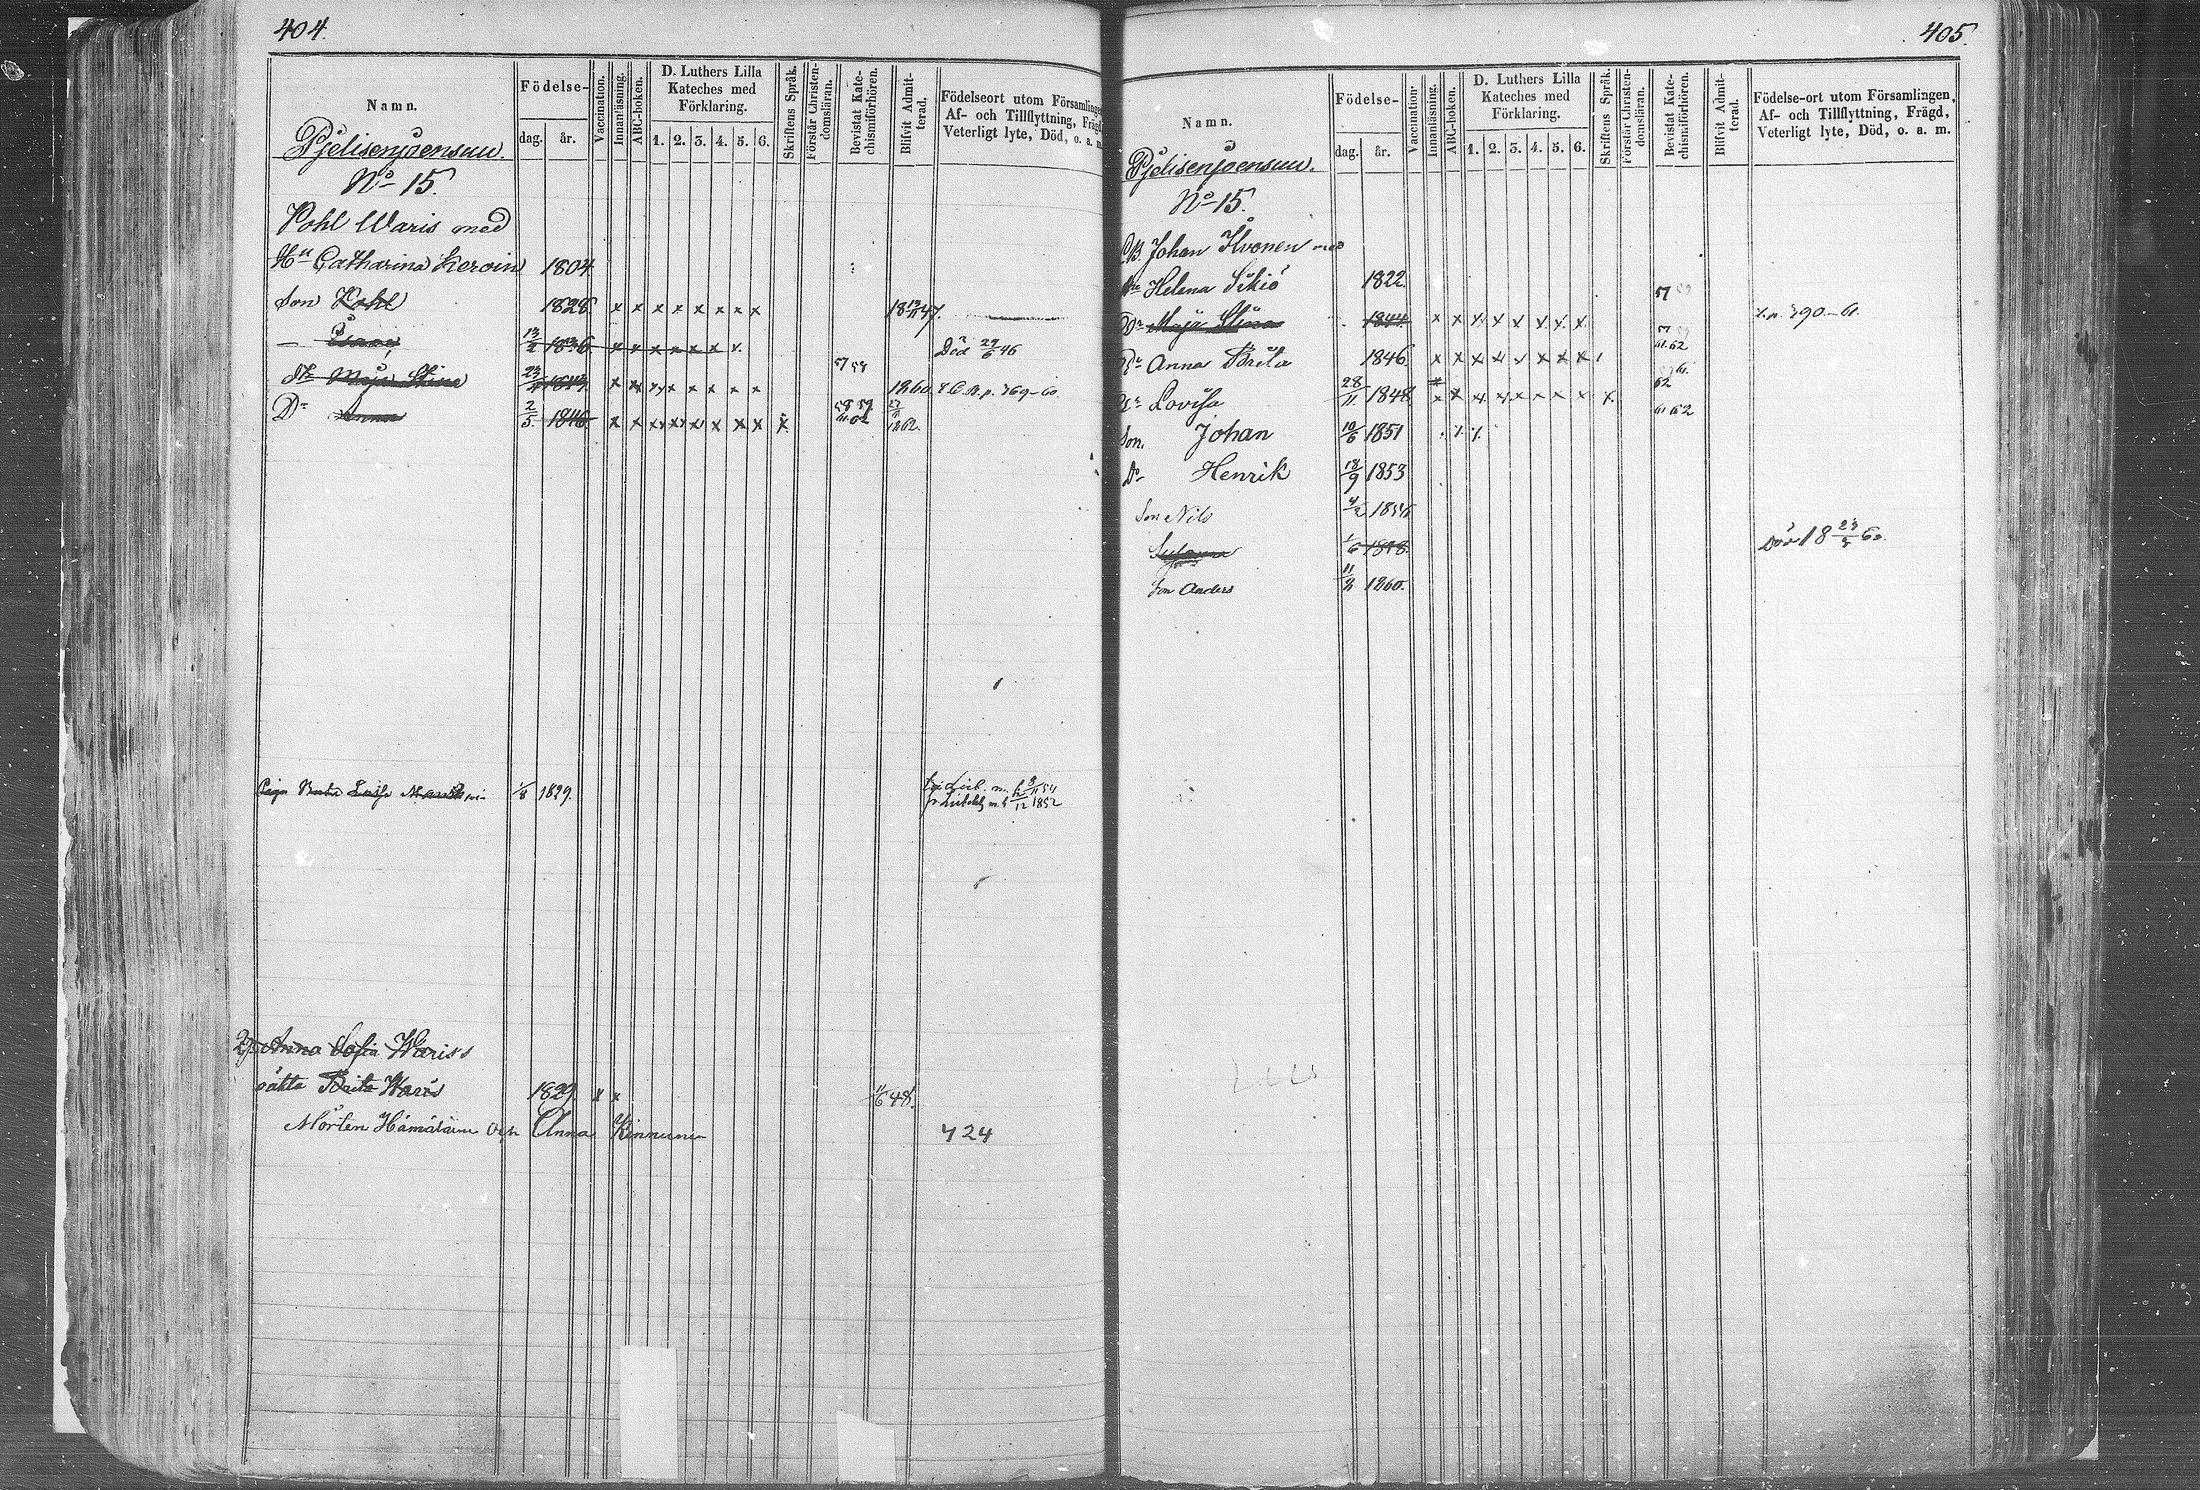 404.
Namn.
Födelse-
dag.
år.
Vaccination.
Innanläsning.
ABC-boken.
D. Luthers Lilla
Kateches med
Förklaring.
1. 2. 3. 4. 5. 6.
Skriftens Språk.
Förstår Christen-
domsläran.
Bevistat Kate-
chismiförhören.
Blifvit Admit-
terad.
Födelseort utom Församlingen
Af- och Tillflyttning, Frägd,
Veterligt lyte, Död, o. a. m.
Pjelisenjoensuu.
No 15.
Pohl Waris med
Hu Catharina Keroin 1804
Son Pohl 1828. x x x x x x x x 18 47.
13/2 1836 x x x x x x Död 29/6 46
Dr Maja Stina x x x x x x x x 57 59 1860.
Dr Anna 2/5. 1846 x x x x x x x x x 58 59 61 62 1862.
Piga 1/8 1829.
1852
Anna Sofia Wariss
Brita Waris 1829. x x 11/6 48.
Mårten Hämäläinen och Anna Kinnunen 424
405.
Namn.
Födelse-
dag.
år.
Vaccination
Innanläsning.
ABC-boken.
D. Luthers Lilla
Kateches med
Förklaring.
1. 2. 3. 4. 5. 6.
Skriftens Språk.
Förstår Christen-
domsläran.
Bevistat Kate-
chismiförhören.
Blifvit Admit-
terad.
Födelse-ort utom Församlingen,
Af- och Tillflyttning, Frägd,
Veterligt lyte, Död, o. a. m.
Pjelisenjoensuu.
No 15.
Johan Ilvonen med
Helena 1822. 57
Dr Maja Stina 1844 x x x x x x x x
Dr Anna Brita 1846. x x x x x x x x 61 62
Dr Lovisa 28/11 1848. x x x x x x x x x 61 62
Son. Johan 10/6 1851
Do Henrik 18/9 1853
Son Nils 4/2 1856
Susanna 1/6 1858. Död 18 60.
Son Anders 11/2 1860.